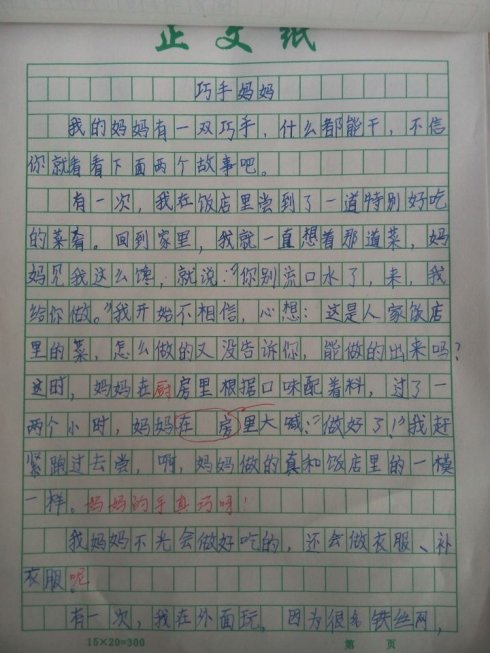 正文纸
巧手妈妈
我的妈妈有一双巧手，什么都能干，不信
你就看看下面两个故事吧。
有一次，我在饭店里尝到了一道特别好吃
的菜肴。回到家里，我就一直想着那道菜，妈
妈见我这么馋，就说：“你别流口水了，来，我
给你做。”我开始不相信，心想：这是人家饭店
里的菜，怎么做的又没告诉你，能做的出来吗？
这时，妈妈在厨房里根据口味配着料，过了一
两个小时，妈妈在 房里大喊：“做好了！”我赶
紧跑过去尝，啊，妈妈做的真和饭店里的一模
一样。妈妈的手真巧呀！
我妈妈不光会做好吃的，还会做衣服、补
衣服呢。
有一次，我在外面玩，因为很多铁丝网，
15×20=300 第 页